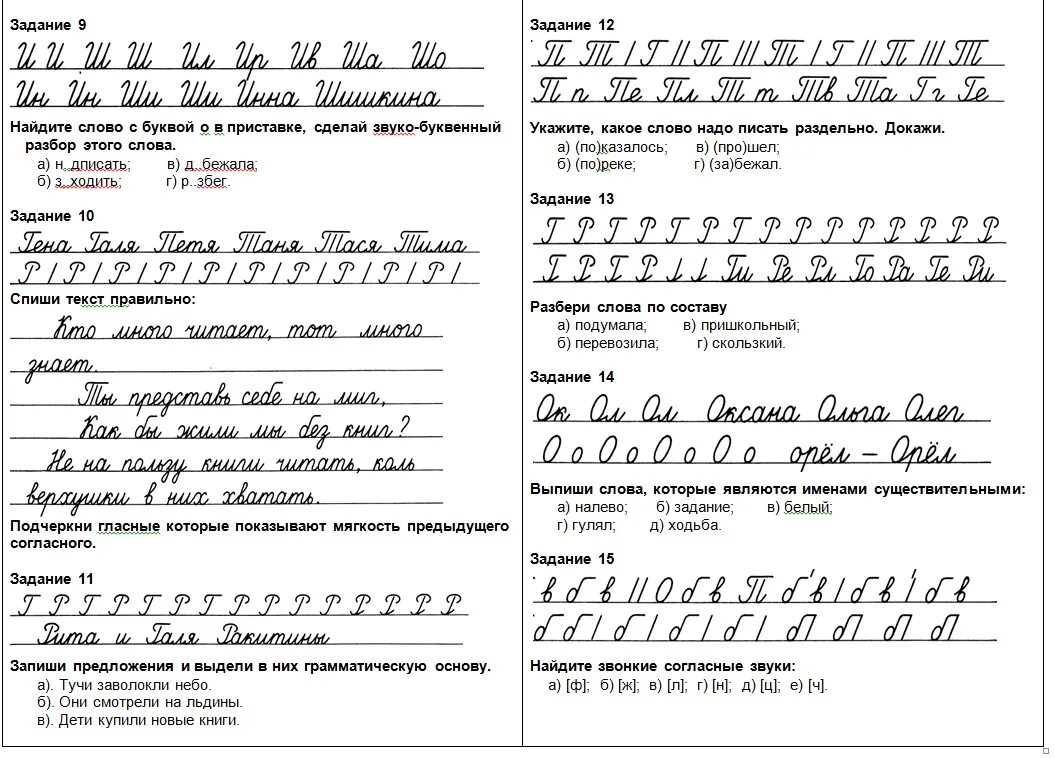 Задание 9
И И Ш Ш Ил Ир Ив Ша Шо
Ин Ин Ши Ши Инна Шишкина
Найдите слово с буквой о в приставке, сделай звуко-буквенный
разбор этого слова.
а) н..дписать; в) д..бежала;
б) з..ходить; г) р..збег.
Задание 10
Гена Галя Петя Таня Тася Тима
Р / Р / Р / Р / Р / Р / Р / Р / Р / Р /
Спиши текст правильно:
Кто много читает, тот много
знает.
Ты представь себе на миг,
Как бы жили мы без книг?
Не на пользу книги читать, коль
верхушки в них хватать.
Подчеркни гласные которые показывают мягкость предыдущего
согласного.
Задание 11
Г Р Г Р Г Р Г Р Р Р Р Р Р Р Р
Рита и Галя Ракитины
Запиши предложения и выдели в них грамматическую основу.
а). Тучи заволокли небо.
б). Они смотрели на льдины.
в). Дети купили новые книги.
Задание 12
П Т / Г // П /// Т / Г // П /// Т
П п Пе Пл Т т Тв Та Г г Ге
Укажите, какое слово надо писать раздельно. Докажи.
а) (по)казалось; в) (про)шел;
б) (по)реке; г) (за)бежал.
Задание 13
Г Р Р Р Г Р Г Р Р Р Р Р Р Р Р
Г Р Г Р Ги Ре Рл Го Ра Ге Ри
Разбери слова по составу
а) подумала; в) пришкольный;
б) перевозила; г) скользкий.
Задание 14
Ок Ол Ол Оксана Ольга Олег
О о О о О о О о орёл – Орёл
Выпиши слова, которые являются именами существительными:
а) налево; б) задание; в) белый;
г) гулял; д) ходьба.
Задание 15
в б в // О б в П б в / б в / б в
б б / б / б / б / б / бП бП бП бП
Найдите звонкие согласные звуки:
а) [ф]; б) [ж]; в) [л]; г) [н]; д) [ц]; е) [ч].